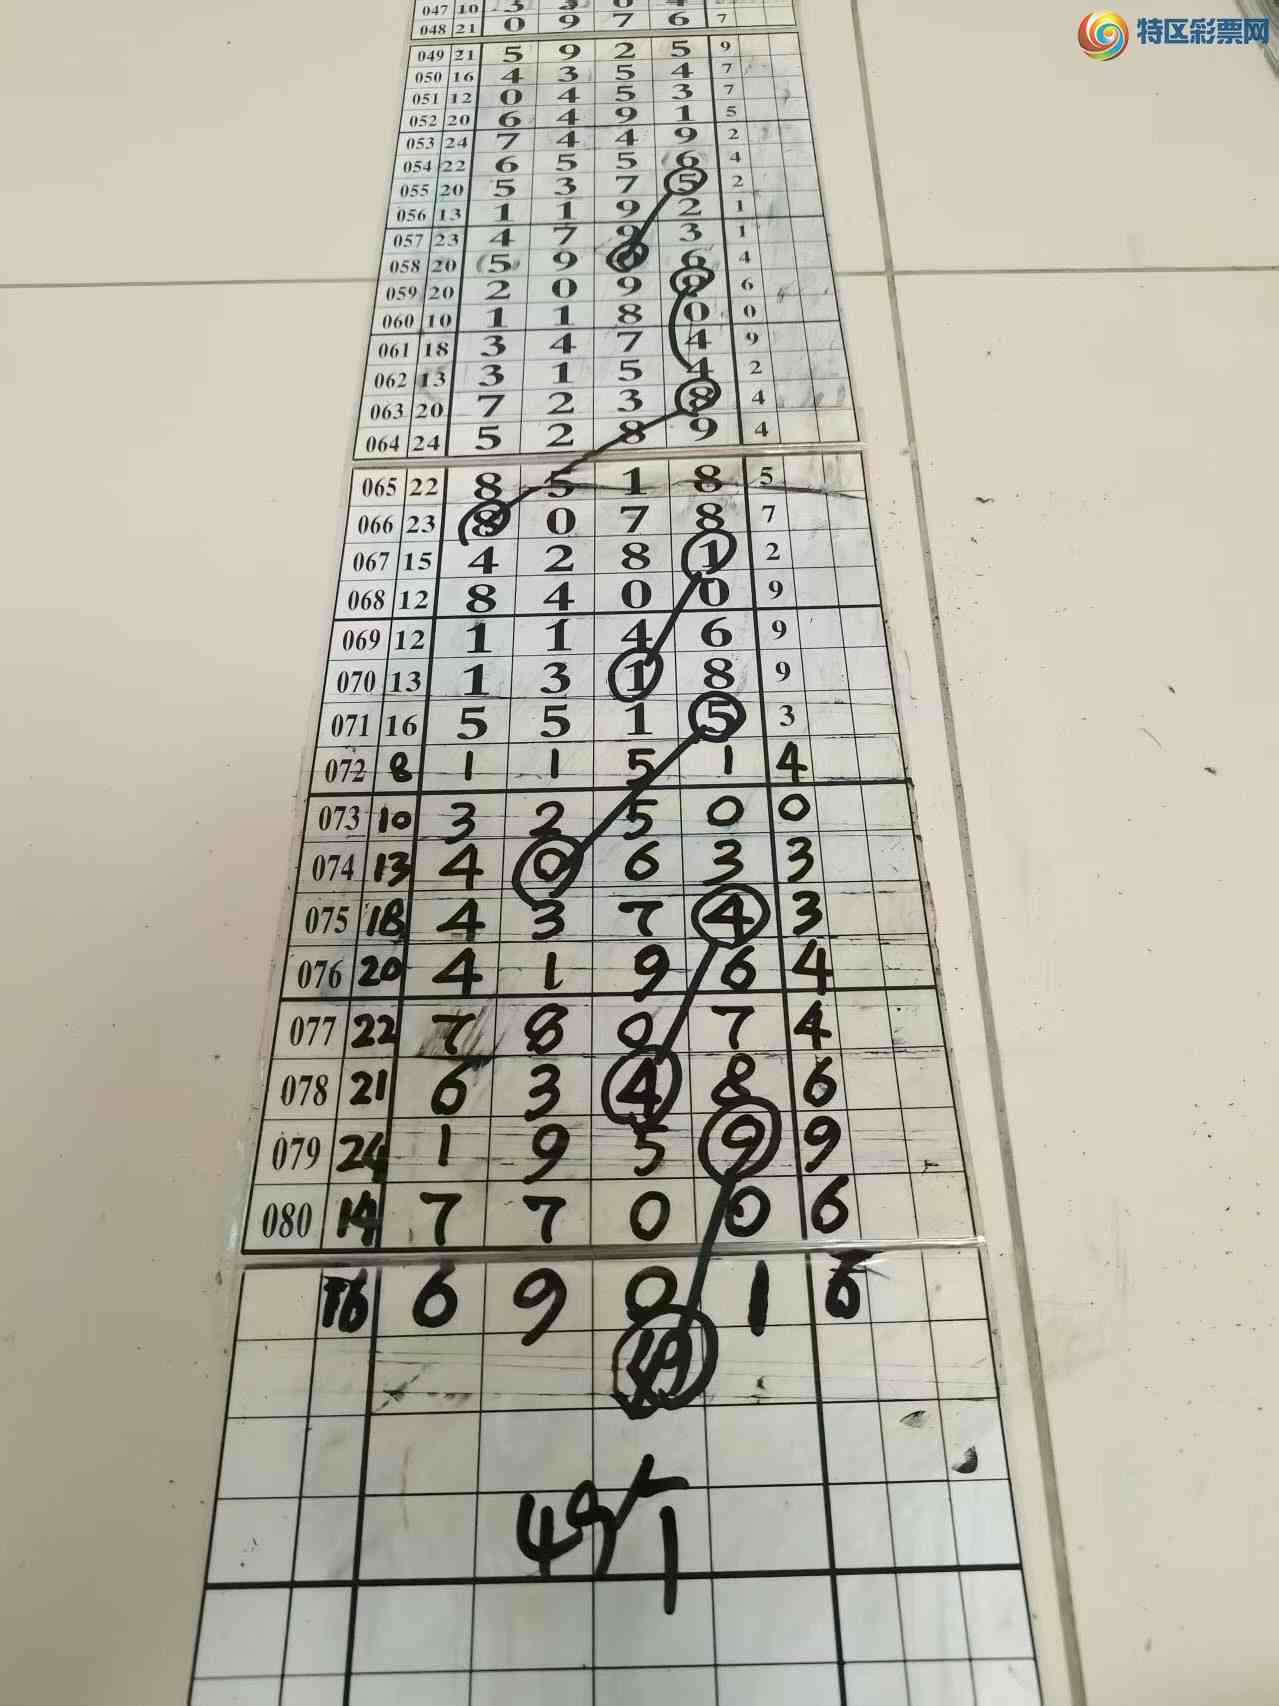 特区彩票网
047 10 3 3 0 4
048 21 0 9 7 6 7
049 21 5 9 2 5 9
050 16 4 3 5 4 7
051 12 0 4 5 3 7
052 20 6 4 9 1 5
053 24 7 4 4 9 2
054 22 6 5 5 6 4
055 20 5 3 7 5 2
056 13 1 1 9 2 1
057 23 4 7 9 3 1
058 20 5 9 6 4
059 20 2 0 9 9 6
060 10 1 1 8 0 0
061 18 3 4 7 4 9
062 13 3 1 5 4 2
063 20 7 2 3 8 4
064 24 5 2 8 9 4
065 22 8 5 1 8 5
066 23 8 0 7 8 7
067 15 4 2 8 1 2
068 12 8 4 0 0 9
069 12 1 1 4 6 9
070 13 1 3 1 8 9
071 16 5 5 1 5 3
072 8 1 1 5 1 4
073 10 3 2 5 0 0
074 13 4 0 6 3 3
075 18 4 3 7 4 3
076 20 4 1 9 6 4
077 22 7 8 0 7 4
078 21 6 3 4 8 6
079 24 1 9 5 9 9
080 14 7 7 0 0 6
16 6 9 0 1 6
49